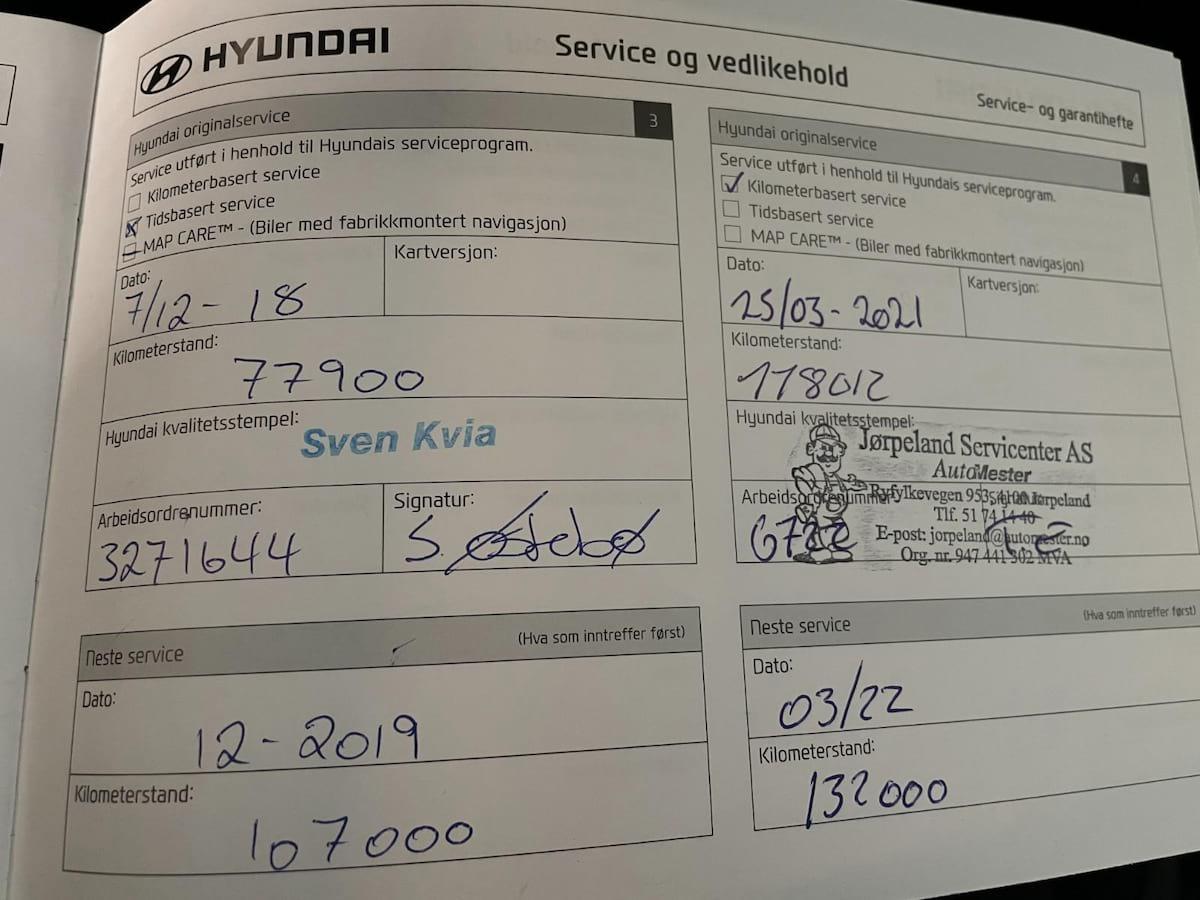 HYUNDAI
Service og vedlikehold
Service- og garantihefte
Hyundai originalservice
3
Service utført i henhold til Hyundais serviceprogram.
Kilometerbasert service
Tidsbasert service
MAP CARE™ - (Biler med fabrikkmontert navigasjon)
Dato:
7/12 - 18
Kartversjon:
Kilometerstand:
77900
Hyundai kvalitetsstempel:
Sven Kvia
Arbeidsordrenummer:
3271644
Signatur:
S. Østebø
Neste service
(Hva som inntreffer først)
Dato:
12 - 2019
Kilometerstand:
107000
Hyundai originalservice
4
Service utført i henhold til Hyundais serviceprogram.
Kilometerbasert service
Tidsbasert service
MAP CARE™ - (Biler med fabrikkmontert navigasjon)
Dato:
25/03 - 2021
Kartversjon:
Kilometerstand:
118012
Hyundai kvalitetsstempel:
Jørpeland Servicenter AS
AutoMester
Arbeidsordrenummer:
Ryfylkevegen 953, 4100 Jørpeland
Tlf. 51 74 14 40
E-post: jorpeland@automester.no
Org. nr. 947 441 302 MVA
Neste service
(Hva som inntreffer først)
Dato:
03/22
Kilometerstand:
132000